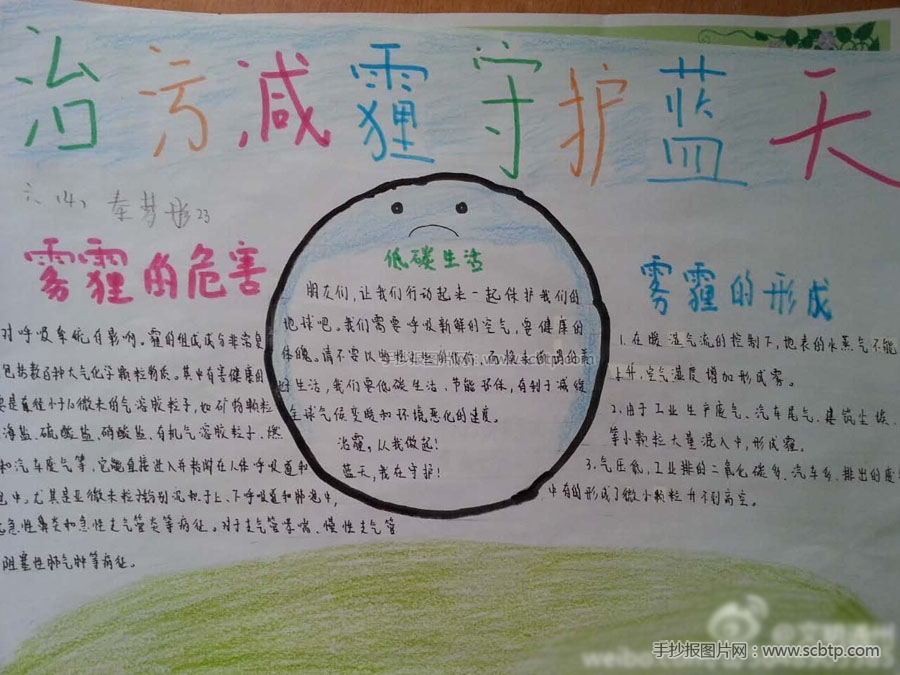 治污减霾守护蓝天
六(4) 秦梦彤 23
雾霾的危害
对呼吸系统有影响。霾的组成成分非常复
包括数百种大气化学颗粒物质。其中有害健康的
要是直径小于10微米的气溶胶粒子,如矿物颗粒
海盐、硫酸盐、硝酸盐、有机气溶胶粒子、燃
和汽车废气等,它能直接进入并粘附在人体呼吸道和
包中,尤其是亚微米粒子会分别沉积于上、下呼吸道和肺泡中,
起急性鼻炎和急性支气管炎等病征。对于支气管哮喘、慢性支气管
阻塞性肺气肿等病征。
低碳生活
朋友们,让我们行动起来一起保护我们的
地球吧,我们需要呼吸新鲜的空气,要健康的
体魄。请不要以牺牲 而换来的
生活,我们要低碳生活、节能环保,有利于减缓
全球气侯变暖和环境恶化的速度。
治霾,从我做起!
蓝天,我在守护!
雾霾的形成
1.在暖湿气流的控制下,地表的水蒸气不能
上升,空气湿度增加形成雾。
2.由于工业生产废气、汽车尾气、建筑尘埃、
等小颗粒大量混入中,形成霾。
3.气压低,工业排的二氧化碳多,汽车多,排出的废
中有的形成了微小颗粒升不到高空。
手抄报图片网:www.scbtp.com